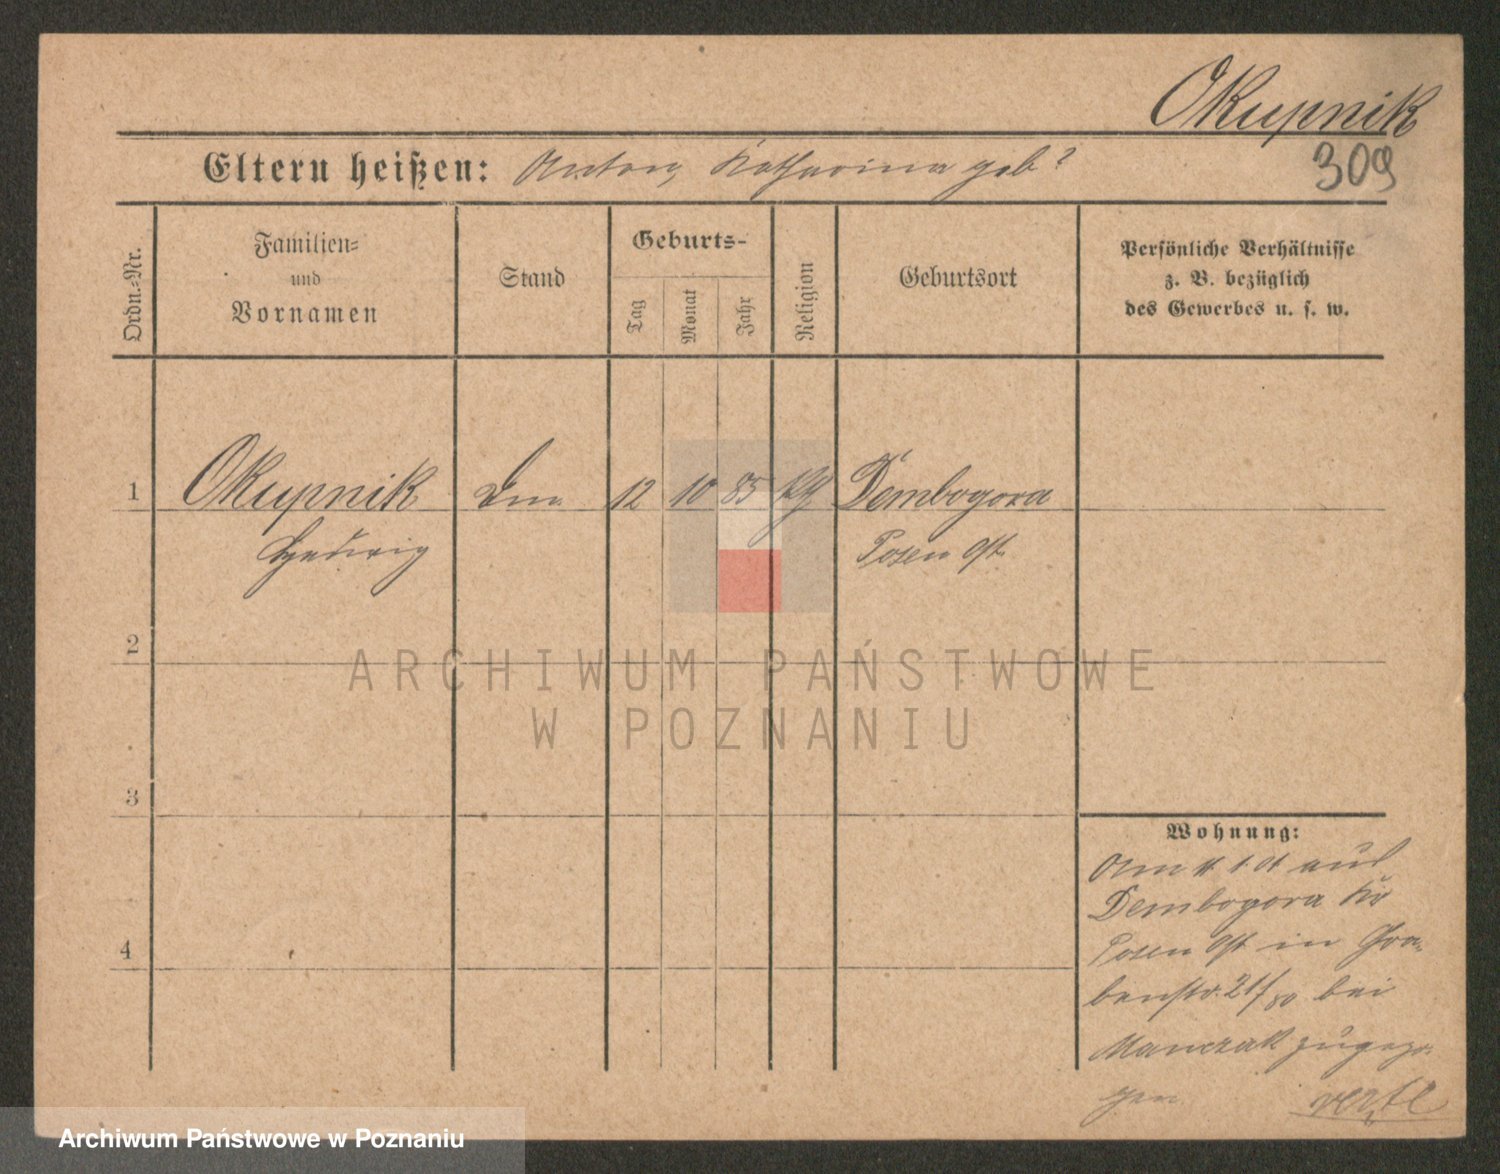 Okupnik
309
Eltern heißen: Anton, Katharina geb?
Ordn.-Nr.
Familien-
und
Vornamen
Stand
Geburts-
Tag
Monat
Jahr
Religion
Geburtsort
Persönliche Verhältnisse
z. B. bezüglich
des Gewerbes u. s. w.
1 Okupnik 12 10 85 Dembogora
Hedwig Posen Ost.
2
3
4
Wohnung:
aus
Dembogora Kr
Posen Ost in Gra-
benstr. 21/ bei
Manczak zugezo-
gen
ARCHIWUM PAŃSTWOWE
W POZNANIU
Archiwum Państwowe w Poznaniu